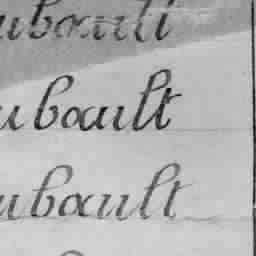 uboault
uboault
uboault